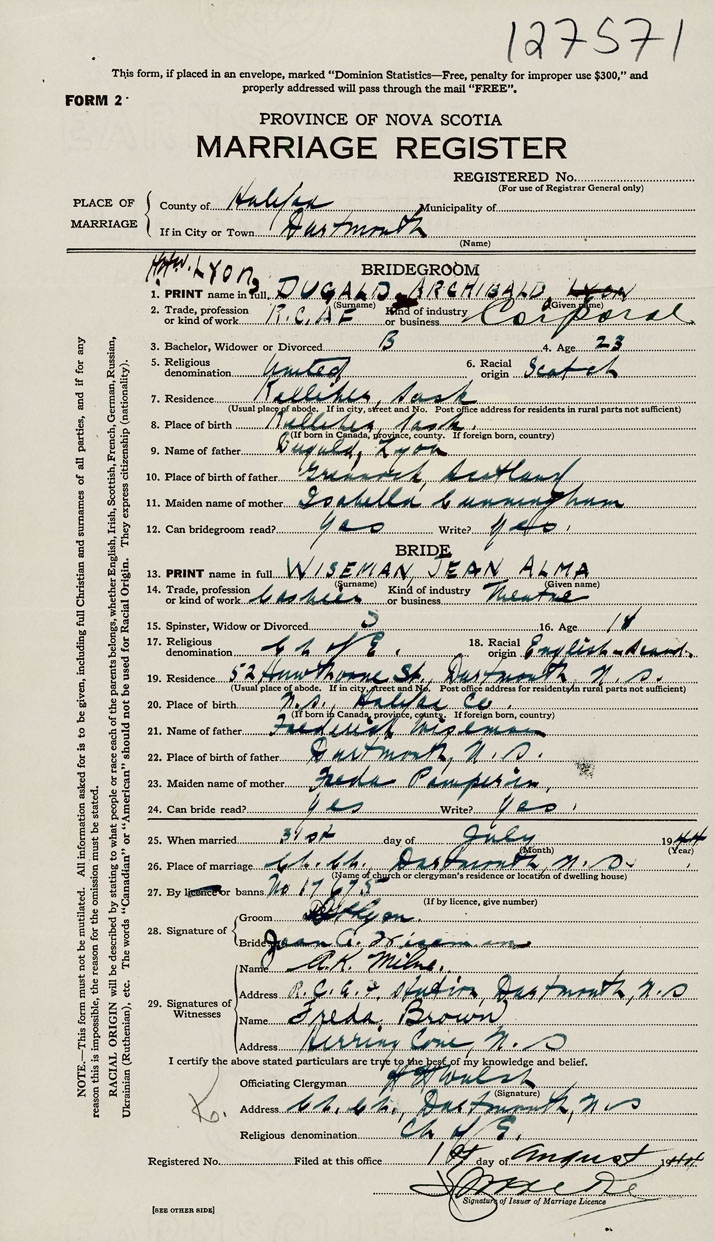 127571
This form, if placed in an envelope, marked "Dominion Statistics—Free, penalty for improper use $300," and
properly addressed will pass through the mail "FREE".
FORM 2
PROVINCE OF NOVA SCOTIA
MARRIAGE REGISTER
REGISTERED No.
(For use of Registrar General only)
PLACE OF MARRIAGE
County of Halifax Municipality of
If in City or Town Dartmouth
(Name)
LYON,
BRIDEGROOM
1. PRINT name in full DUGALD ARCHIBALD LYON
(Surname) (Given name)
2. Trade, profession or kind of work R.C.A.F Kind of industry or business Corporal
3. Bachelor, Widower or Divorced B 4. Age 23
5. Religious denomination United 6. Racial origin Scotch
7. Residence Kelliher, Sask
(Usual place of abode. If in city, street and No. Post office address for residents in rural parts not sufficient)
8. Place of birth Kelliher, Sask.
(If born in Canada, province, county. If foreign born, country)
9. Name of father Dugald, Lyon
10. Place of birth of father Greenock, Scotland
11. Maiden name of mother Isabella Cunningham
12. Can bridegroom read? yes Write? yes.
BRIDE
13. PRINT name in full WISEMAN JEAN ALMA
(Surname) (Given name)
14. Trade, profession or kind of work Cashier Kind of industry or business Theatre
15. Spinster, Widow or Divorced S 16. Age 18
17. Religious denomination Ch of E. 18. Racial origin English
19. Residence 52 Hawthorne St., Dartmouth, N.S.
(Usual place of abode. If in city, street and No. Post office address for residents in rural parts not sufficient)
20. Place of birth N.S., Halifax Co.
(If born in Canada, province, county. If foreign born, country)
21. Name of father Frederick Wiseman
22. Place of birth of father Dartmouth, N.S.
23. Maiden name of mother Freda Pamperin,
24. Can bride read? yes Write? yes.
25. When married 31st day of July 1944
(Month) (Year)
26. Place of marriage Ch. Ch., Dartmouth, N.S.
(Name of church or clergyman's residence or location of dwelling house)
27. By licence or banns No 17675
(If by licence, give number)
28. Signature of
Groom Lyon.
Bride Jean A. Wiseman
29. Signatures of Witnesses
Name A.K. Milne.
Address R.C.A.F Station, Dartmouth, N.S
Name Freda Brown
Address Herring Cove, N.S
I certify the above stated particulars are true to the best of my knowledge and belief.
Officiating Clergyman Walsh
(Signature)
Address Ch. Ch., Dartmouth, N.S
Religious denomination Ch of E.
Registered No. Filed at this office 1st day of August 1944
Signature of Issuer of Marriage Licence
[SEE OTHER SIDE]
NOTE.—This form must not be mutilated. All information asked for is to be given, including full Christian and surnames of all parties, and if for any
reason this is impossible, the reason for the omission must be stated.
RACIAL ORIGIN will be described by stating to what people or race each of the parents belongs, whether English, Irish, Scottish, French, German, Russian,
Ukrainian (Ruthenian), etc. The words "Canadian" or "American" should not be used for Racial Origin. They express citizenship (nationality).